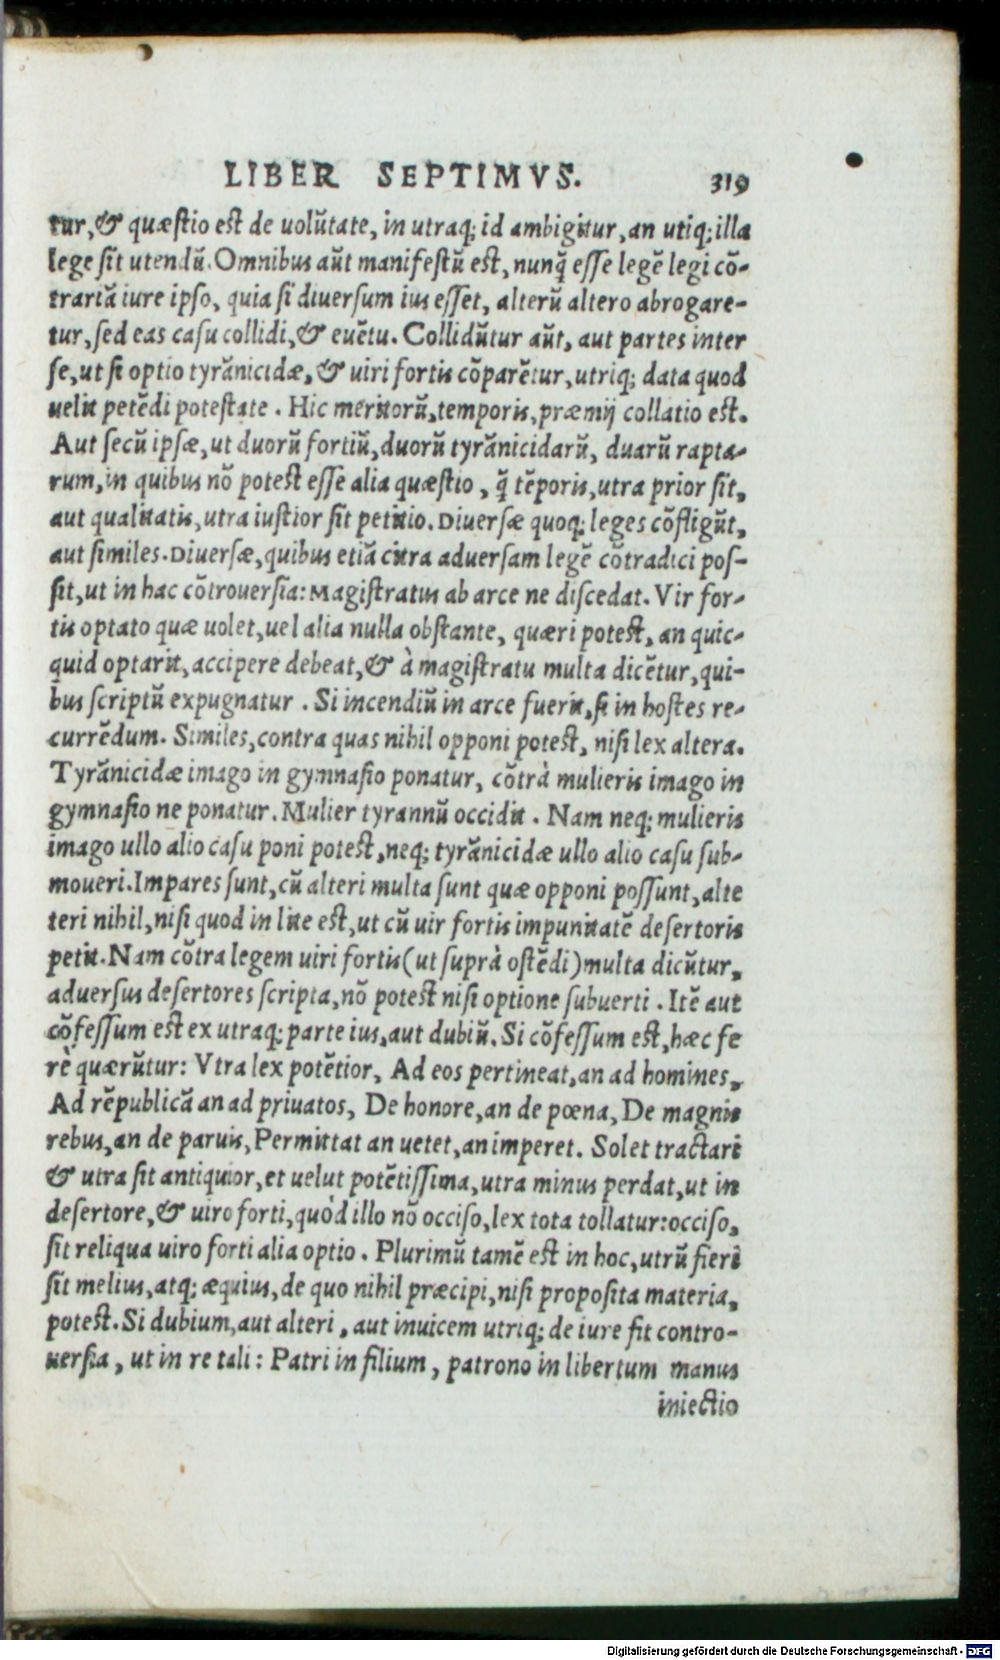 LIBER SEPTIMVS. 319
tur, & quæstio est de uolũtate, in utraq; id ambigitur, an utiq; illa
lege sit utendũ. Omnibus aũt manifestũ est, nunq̃ esse legẽ legi cõ-
trariã iure ipso, quia si diuersum ius esset, alterũ altero abrogare-
tur, sed eas casu collidi, & euẽtu. Collidũtur aũt, aut partes inter
se, ut si optio tyrãnicidæ, & uiri fortis cõparẽtur, utriq; data quod
uelit petẽdi potestate. Hic meritorũ, temporis, præmij collatio est.
Aut secũ ipsæ, ut duorũ fortiũ, duorũ tyrãnicidarũ, duarũ rapta-
rum, in quibus nõ potest esse alia quæstio, q̃ tẽporis, utra prior sit,
aut qualitatis, utra iustior sit petitio. Diuersæ quoq; leges cõfligũt,
aut similes. Diuersæ, quibus etiã citra aduersam legẽ cõtradici pos-
sit, ut in hac cõtrouersia: Magistratus ab arce ne discedat. Vir for-
tis optato quæ uolet, uel alia nulla obstante, quæri potest, an quic-
quid optarit, accipere debeat, & à magistratu multa dicẽtur, qui-
bus scriptũ expugnatur. Si incendiũ in arce fuerit, si in hostes re-
currẽdum. Similes, contra quas nihil opponi potest, nisi lex altera.
Tyrãnicidæ imago in gymnasio ponatur, cõtrà mulieris imago in
gymnasio ne ponatur. Mulier tyrannũ occidit. Nam neq; mulieris
imago ullo alio casu poni potest, neq; tyrãnicidæ ullo alio casu sub-
moueri. Impares sunt, cũ alteri multa sunt quæ opponi possunt, alte
teri nihil, nisi quod in lite est, ut cũ uir fortis impunitatẽ desertoris
petit. Nam cõtra legem uiri fortis (ut suprà ostẽdi) multa dicũtur,
aduersus desertores scripta, nõ potest nisi optione subuerti. Itẽ aut
cõfessum est ex utraq; parte ius, aut dubiũ. Si cõfessum est, hæc fe
rè quærũtur: Vtra lex potẽtior, Ad eos pertineat, an ad homines,
Ad rẽpublicã an ad priuatos, De honore, an de pœna, De magnis
rebus, an de paruis, Permittat an uetet, an imperet. Solet tractari
& utra sit antiquior, et uelut potẽtissima, utra minus perdat, ut in
desertore, & uiro forti, quòd illo nõ occiso, lex tota tollatur: occiso,
sit reliqua uiro forti alia optio. Plurimũ tamẽ est in hoc, utrũ fieri
sit melius, atq; æquius, de quo nihil præcipi, nisi proposita materia,
potest. Si dubium, aut alteri, aut inuicem utriq; de iure fit contro-
uersia, ut in re tali: Patri in filium, patrono in libertum manus
iniectio
Digitalisierung gefördert durch die Deutsche Forschungsgemeinschaft - DFG